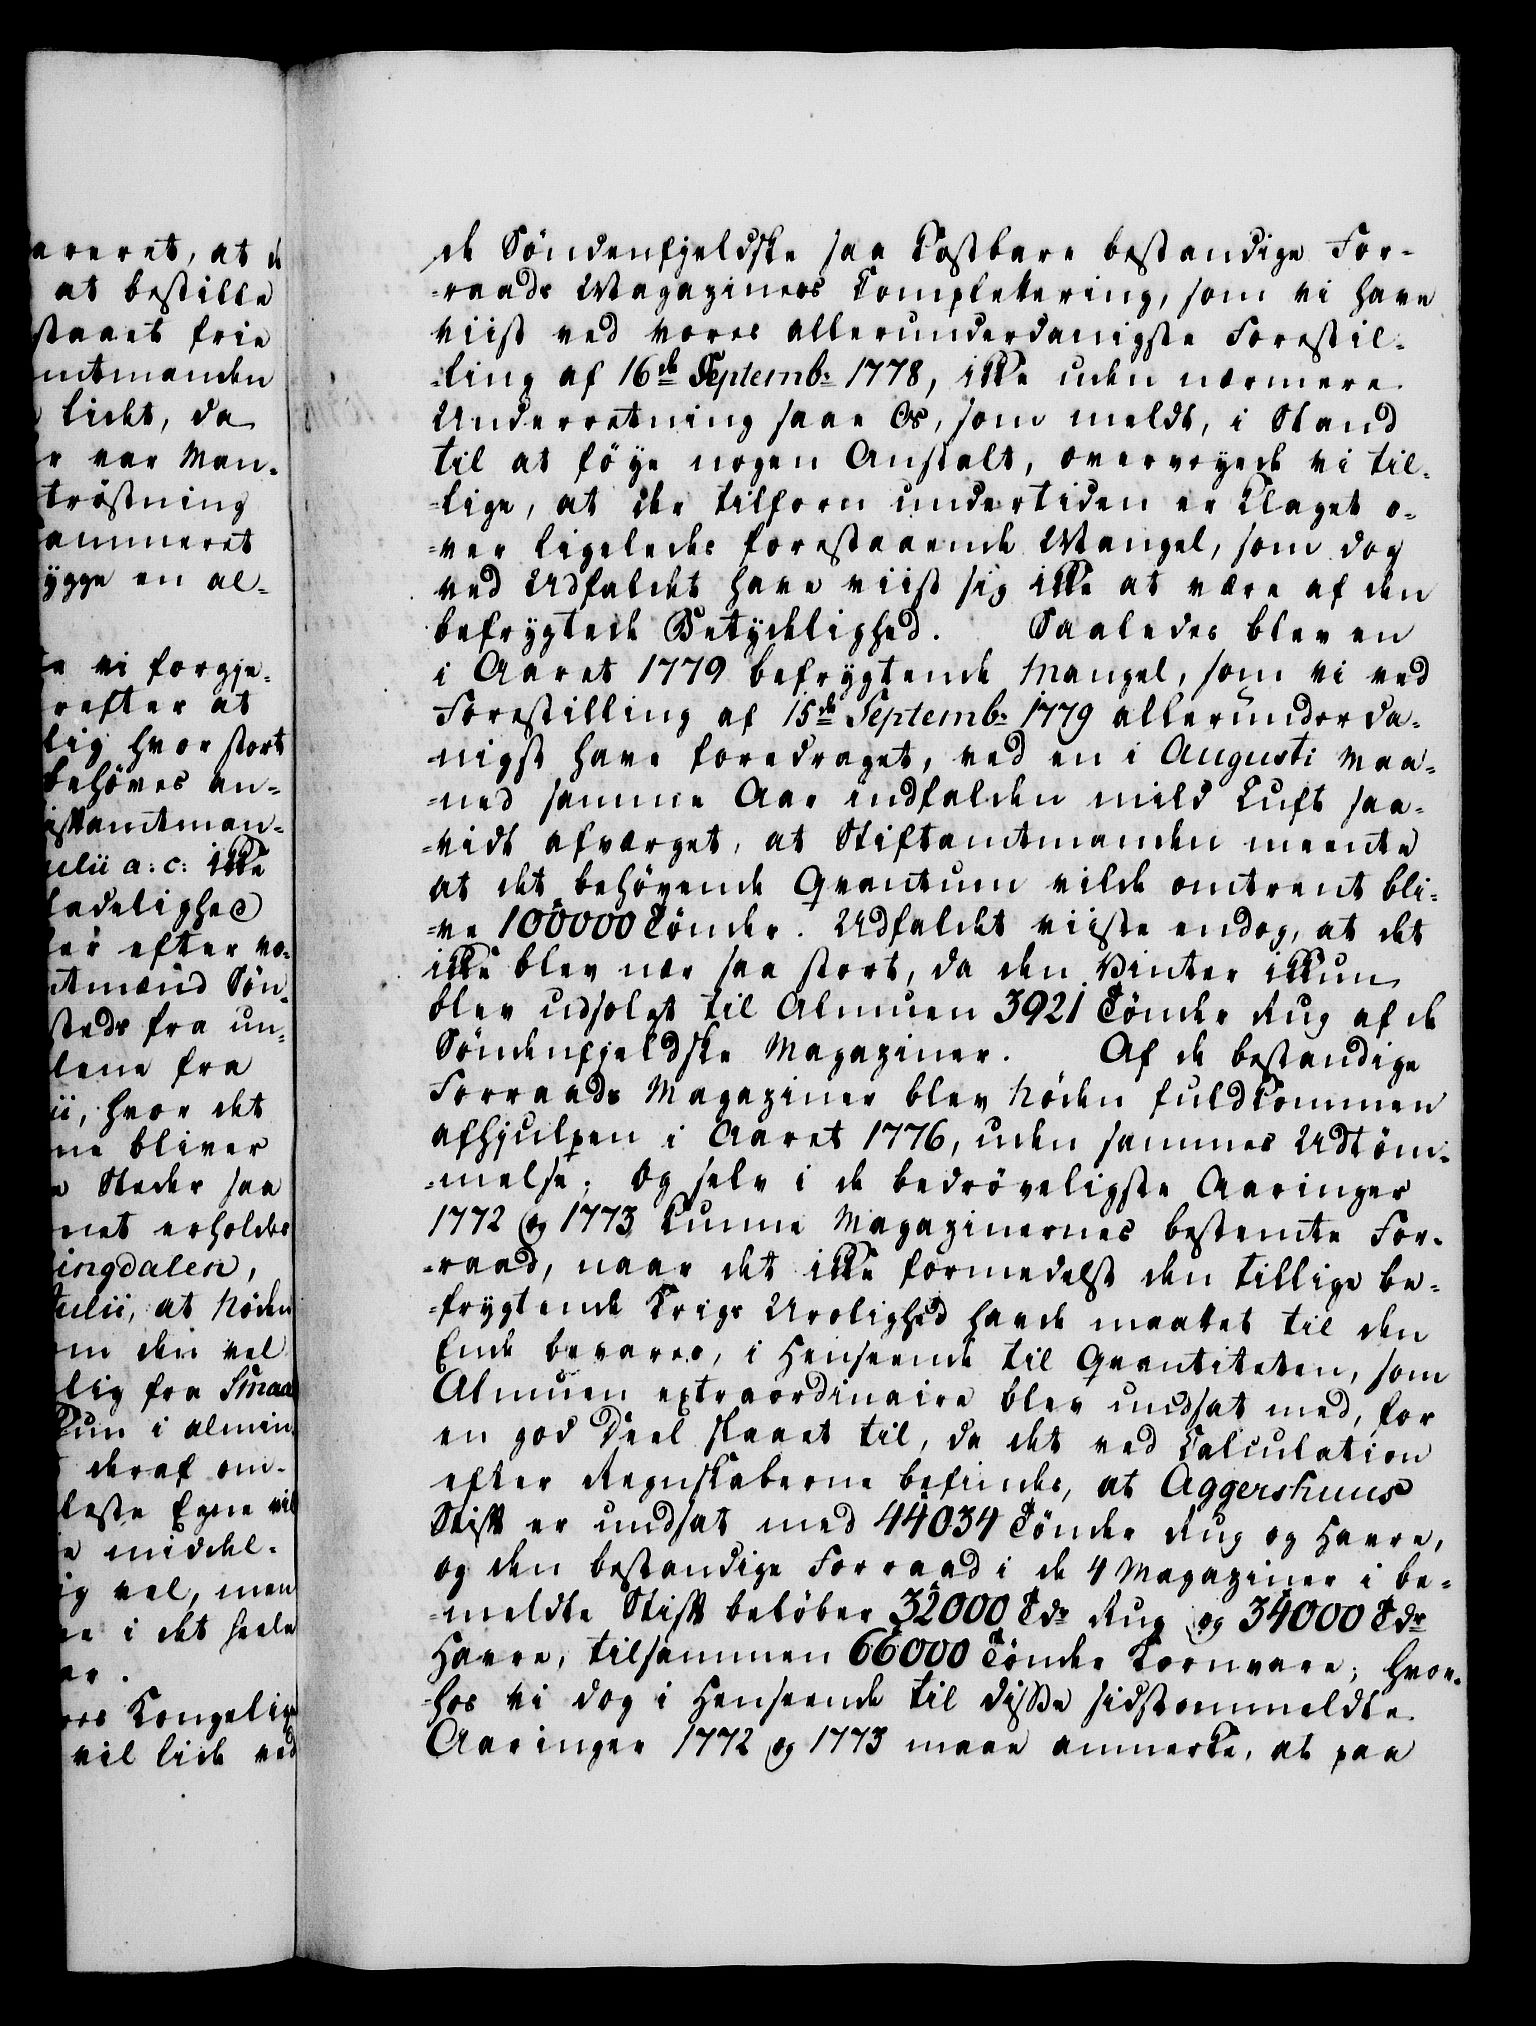 areret, at d
at bestille
staaet frie
mtmanden
lidet, da
r var Man-
tröstning
ammeret
ygge en al-
e vi forgje-
refter at
lig hvor stort
behöves an-
iftamtman-
ulii a: c: ikke
ladelighed
ler efter vo-
tmænd Sön-
steds fra un-
lene fra
ii, hvor det
ne bliver
e Steder saa
net erholdes
ingdalen,
Julii, at Nöden
om den vel
lig fra Smaa
kun i almin
deraf om-
leste Egne vil
e middel-
ig vel, men
ne i det heele
ar.
ores Kongelig
vil lide ved
de Söndenfjeldske saa kostbare bestandige For-
-raads Magaziners Completering, som vi have
viist ved vores allerunderdanigste Forestil-
-ling af 16de Septemb: 1778, ikke uden nærmere
Underretning saae Os, som meldt, i Stand
til at föye nogen Anstalt, overveyede vi til-
-lige, at der tilforn undertiden er klaget o-
-ver ligeledes forestaaende Mangel, som dog
ved Udfaldet have viist sig ikke at være af den
befrygtede Betydelighed. Saaledes blev en
i Aaret 1779 befrygtende Mangel, som vi ved
Forestilling af 15de Septemb: 1779 allerunderda-
-nigst have foredraget, ved en i Augusti Maa-
-ned samme Aar indfalden mild Luft saa-
-vidt afværget, at Stiftamtmanden meente
at det behövende Qvantum vilde omtrent bli-
-ve 100000 Tönder. Udfaldet viiste endog, at det
ikke blev nær saa stort, da den Vinter ikkun
blev udsolgt til Almuen 3921 Tönder Rug af de
Söndenfjeldske Magaziner. Af de bestandige
Forraads Magaziner blev Nöden fuldkommen
afhjulpen i Aaret 1776, uden sammes Udtöm-
-melse; Og selv i de bedröveligste Aaringer
1772 og 1773 kunne Magazinernes bestemte For-
-raad, naar det ikke formedelst den tillige be-
-frygtende Krigs Urolighed havde maattet til den
Ende bevares, i Henseende til Qvantiteten, som
Almuen extraordinaire blev undsat med, for
en god Deel slaaet til, da det ved Calculation
efter Regnskaberne befindes, at Aggershuus
Stift er undsat med 44034 Tönder Rug og Havre,
og den bestandige Forraad i de 4 Magaziner i be-
-meldte Stift belöber 32000 Tdr Rug og 34000 Tdr
Havre, tilsammen 66000 Tönder Kornvare; hvor-
-hos vi dog i Henseende til disse sidstommeldte
Aaringer 1772 og 1773 maae anmerke, at paa